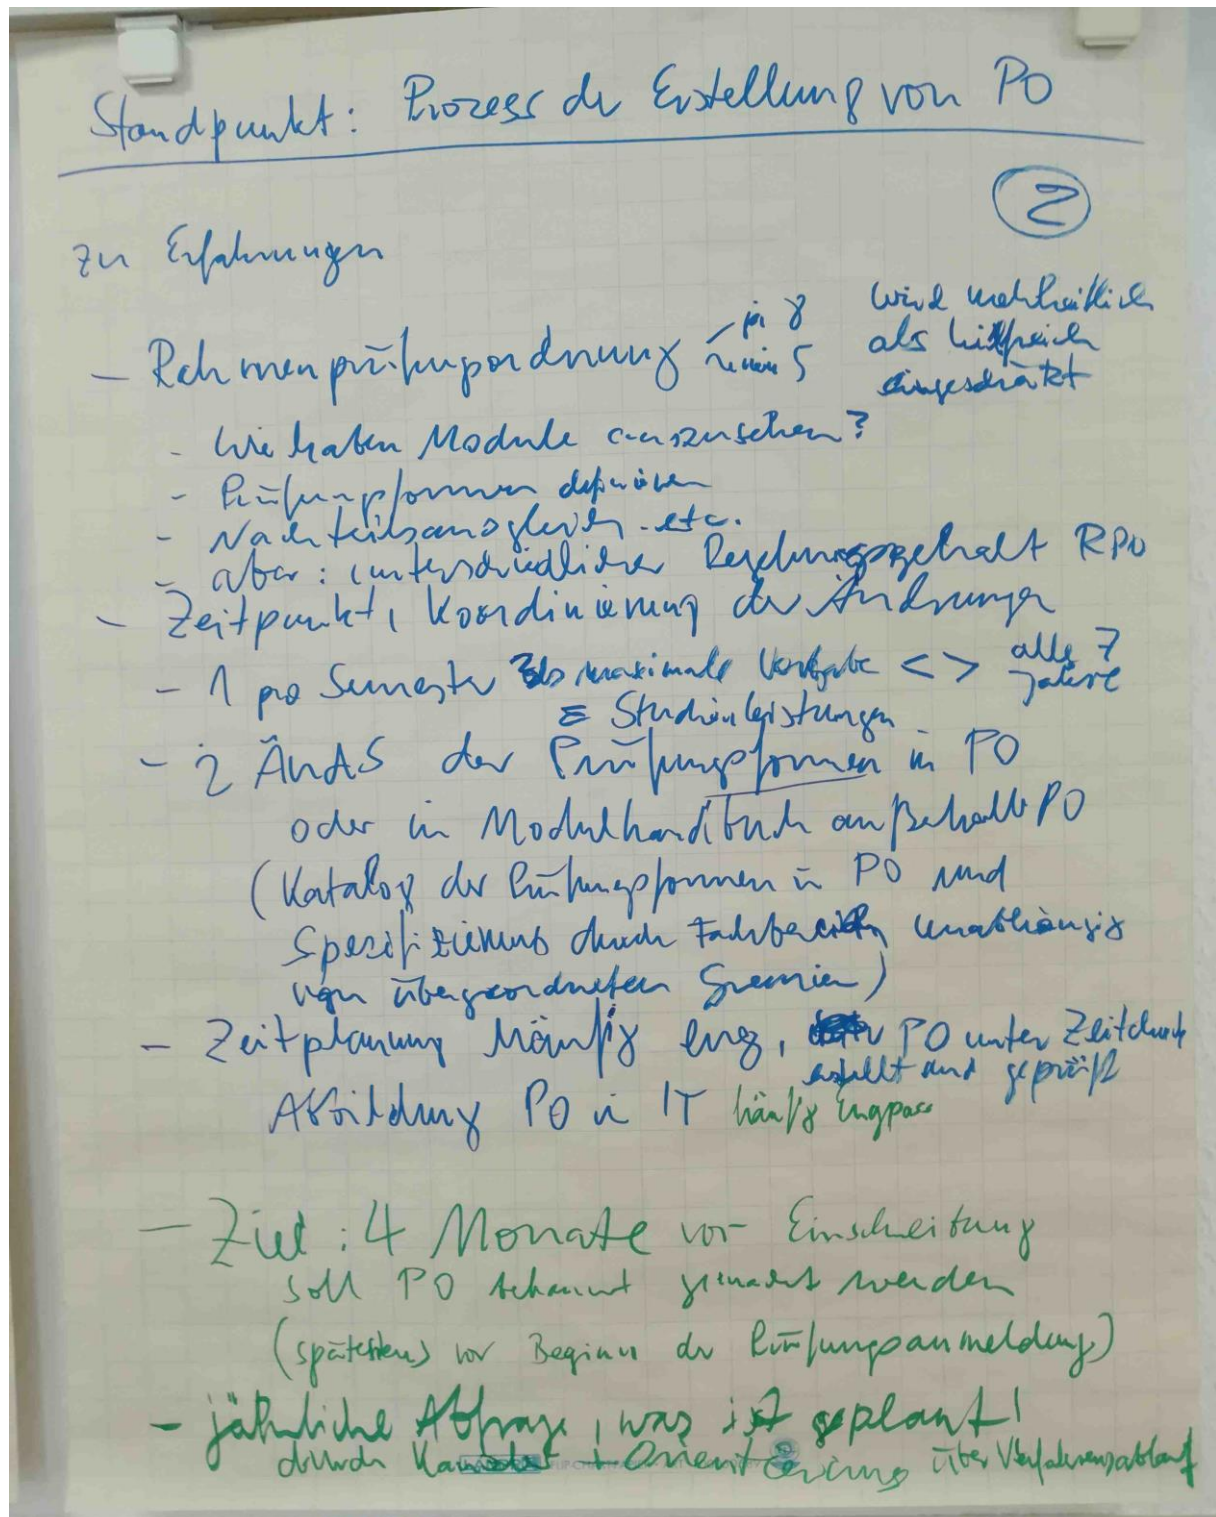 Standpunkt: Prozess der Erstellung von PO
2
zu Erfahrungen
- Rahmenprüfungsordnung - ja 8
nein 5
wird mehrheitlich
als hilfreich
eingeschätzt
- Wie haben Module auszusehen?
- Prüfungsformen definieren
- Nachteilsausgleich etc.
- aber: unterschiedlicher Regelungsgehalt RPO
- Zeitpunkt, Koordinierung der Änderungen
- 1 pro Semester als maximale Vorgabe <> alle 7
Jahre
= Studienleistungen
- ÄndS der Prüfungsformen in PO
oder in Modulhandbuch außerhalb PO
(Katalog der Prüfungsformen in PO und
Spezifizierung durch Fachbereich unabhängig
von übergeordneten Gremien)
- Zeitplanung häufig eng, PO unter Zeitdruck
erstellt und geprüft
Abbildung PO in IT häufig Engpass
- Ziel: 4 Monate vor Einschreibung
soll PO bekannt gemacht werden
(spätestens vor Beginn der Prüfungsanmeldung)
- jährliche Abfrage, was ist geplant!
durch + Orientierung über Verfahrensablauf